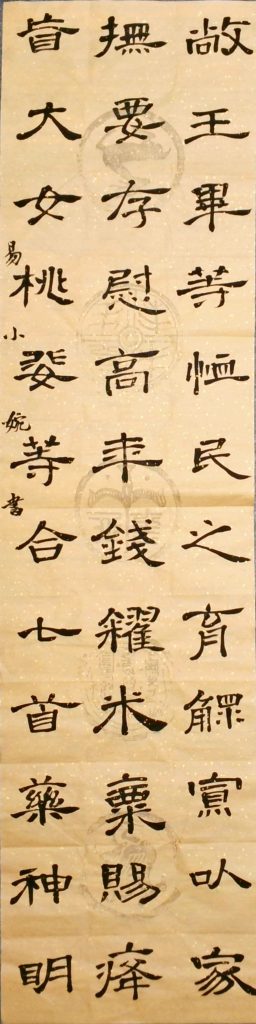 敞王畢等恤民之育鰥寡以家
撫要存慰高年錢糴米粟賜癃
盲大女桃婓等合七首藥神明
易小婉書